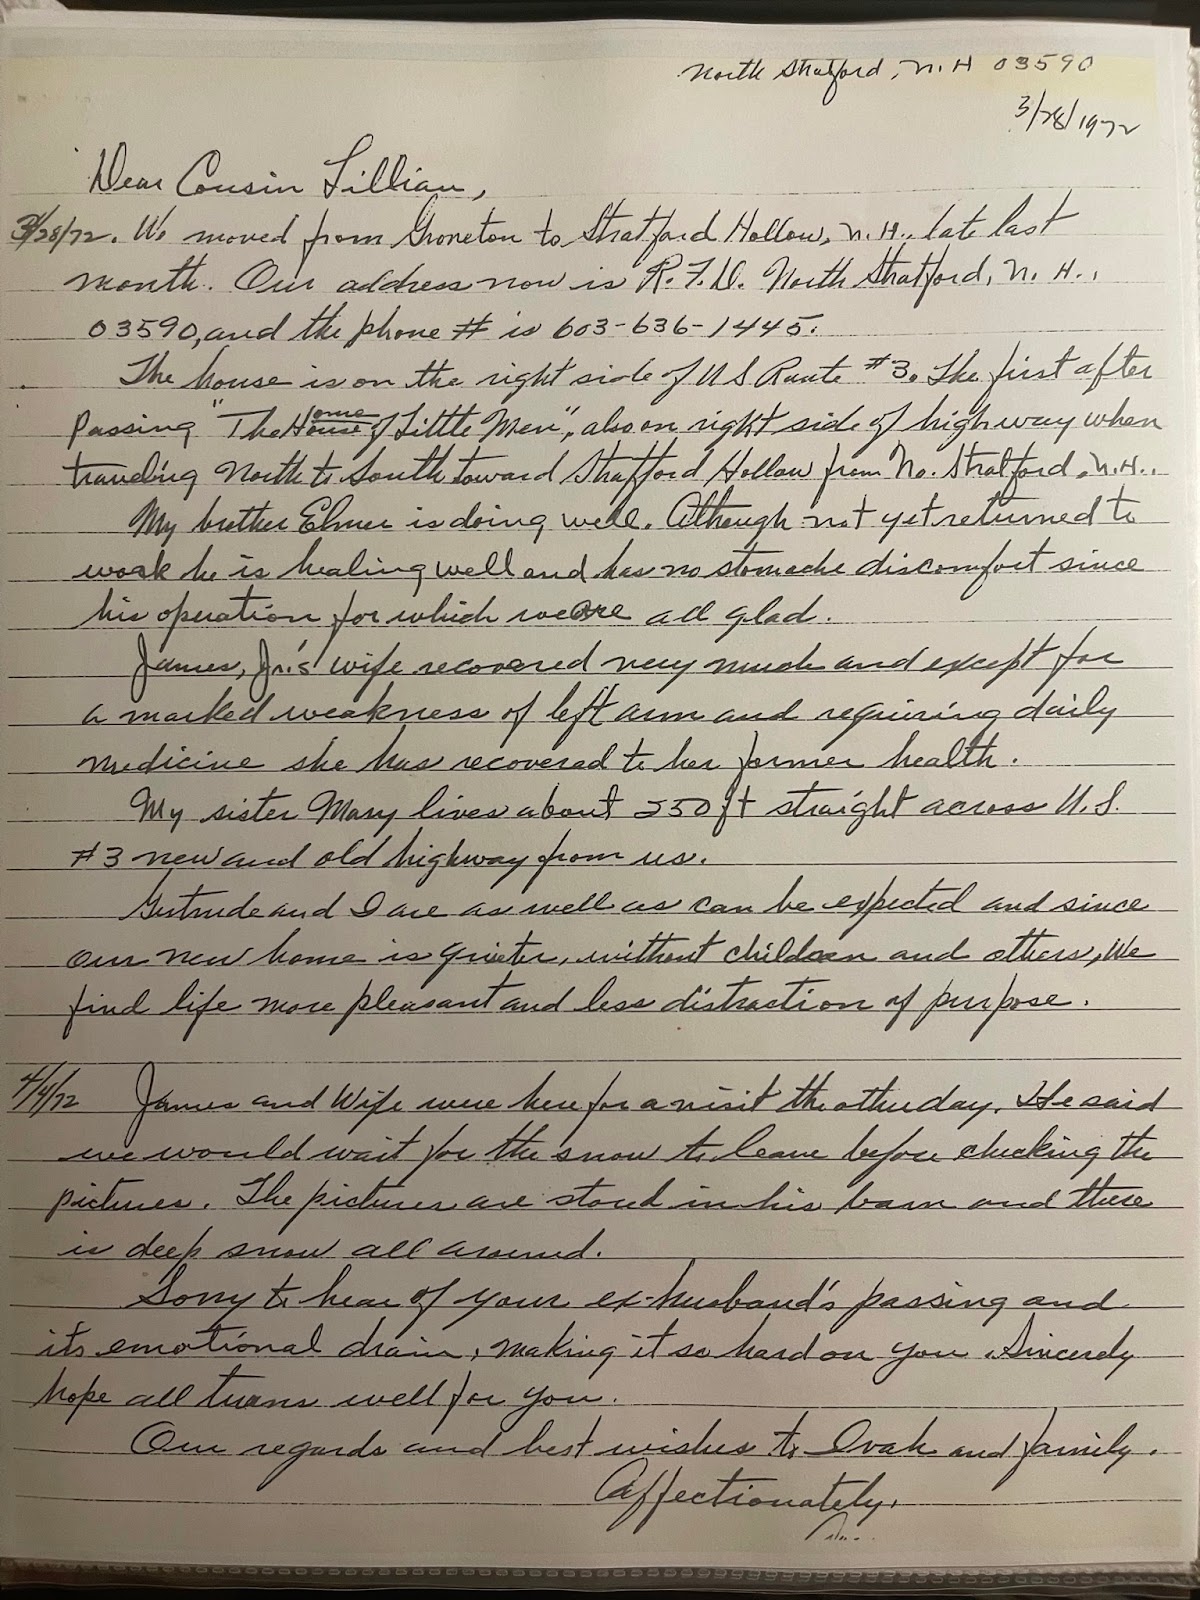 North Stratford, N.H 03590
3/28/1972
Dear Cousin Lillian,
3/28/72. We moved from Groveton to Stratford Hollow, N.H., late last
month. Our address now is R.F.D. North Stratford, N.H.,
03590, and the phone # is 603-636-1445.
The house is on the right side of US Route #3. The first after
Passing "The House Home of Little Men", also on right side of highway when
traveling North to South toward Stratford Hollow from No. Stratford, N.H..
My brother Elmer is doing well. Although not yet returned to
work he is healing well and has no stomache discomfort since
his operation for which we are all glad.
James, Jr.'s wife recovered very much and except for
a marked weakness of left arm and requiring daily
medicine she has recovered to her former health.
My sister Mary lives about 250 ft straight across U.S.
#3 new and old highway from us.
Gertrude and I are as well as can be expected and since
our new home is quieter, without children and others, We
find life more pleasant and less distraction of purpose.
4/4/72 James and Wife were here for a visit the other day. He said
we would wait for the snow to leave before checking the
pictures. The pictures are stored in his barn and there
is deep snow all around.
Sorry to hear of your ex-husband's passing and
its emotional drain, making it so hard on you. Sincerely
hope all turns well for you.
Our regards and best wishes to Ivah and family.
Affectionately,